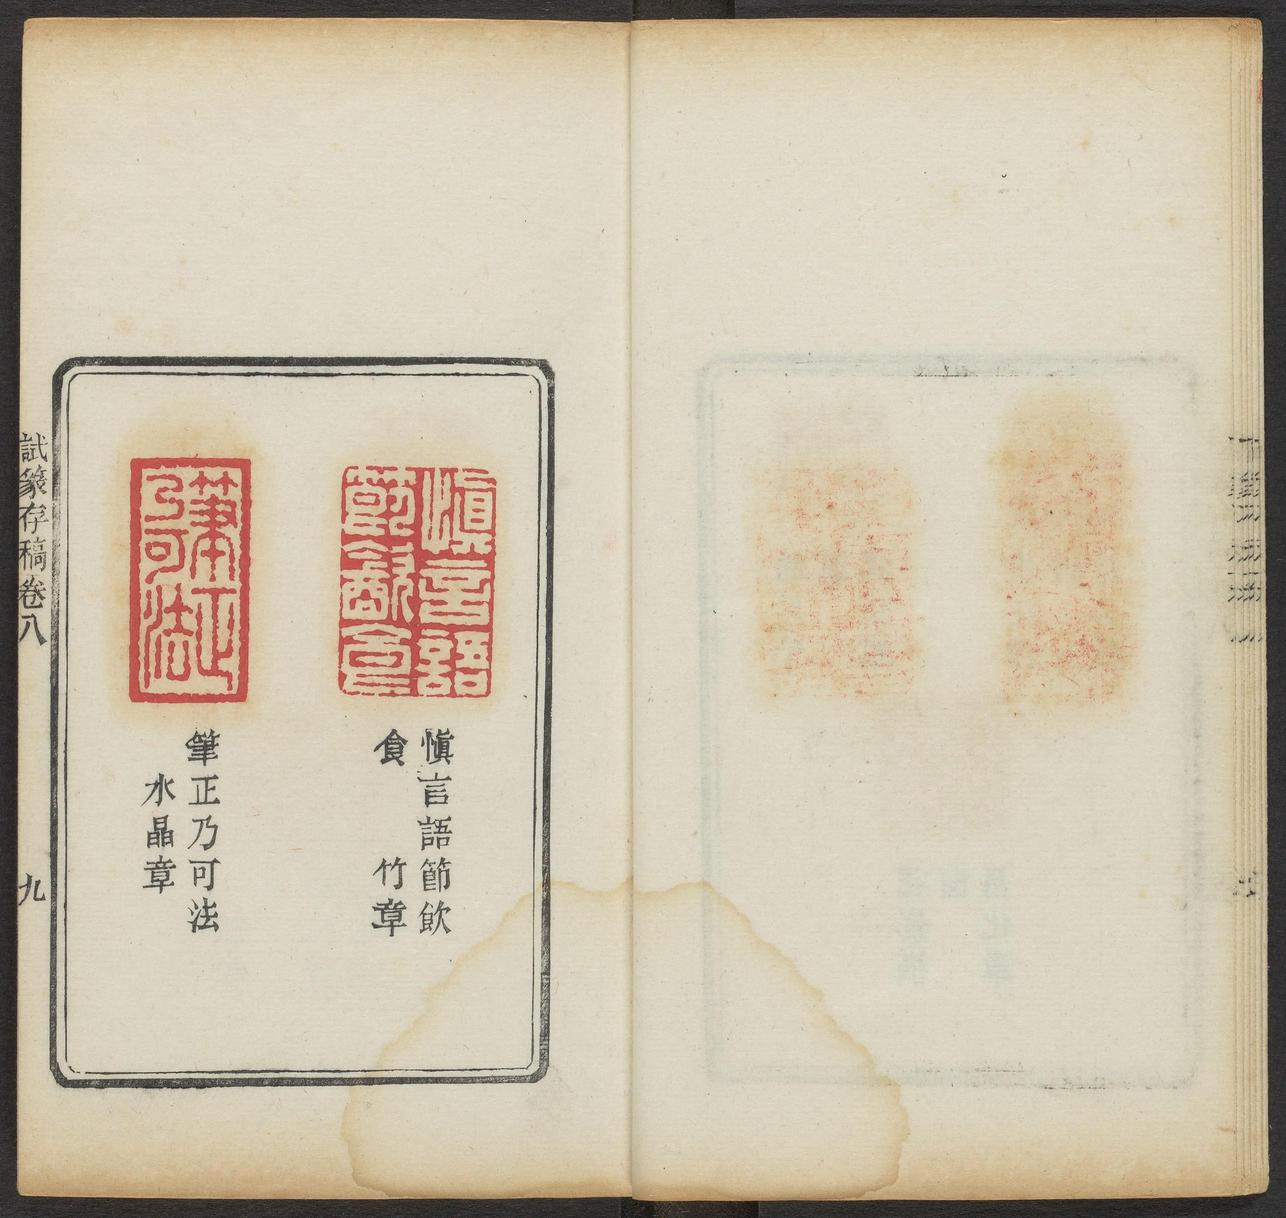 慎言語
節飲食
慎言語節飲
食　竹章
筆正
乃可法
筆正乃可法
水晶章
試篆存稿卷八
九